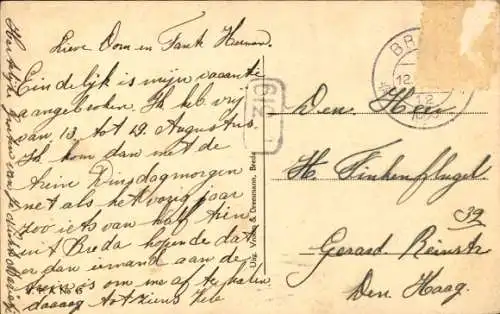 Lieve Oom en Tante Herman.
Eindelijk is mijn vacantie
aangebroken. Ik heb vrij
van 13 tot 19 Augustus.
Ik kom dan met de
trein Dinsdagmorgen
net als het vorig jaar
zoo iets van half tien
uit Breda hopende dat
er dan iemand aan de
trein is om me af te halen
daaaag tot ziens
Hartelijk
V. P. A. No 45
Uitg. Vroom & Dreesmann, Breda
219
BR
12
Den Heer
H. Finkenflugel
39
Gerard Reinstr
Den Haag.